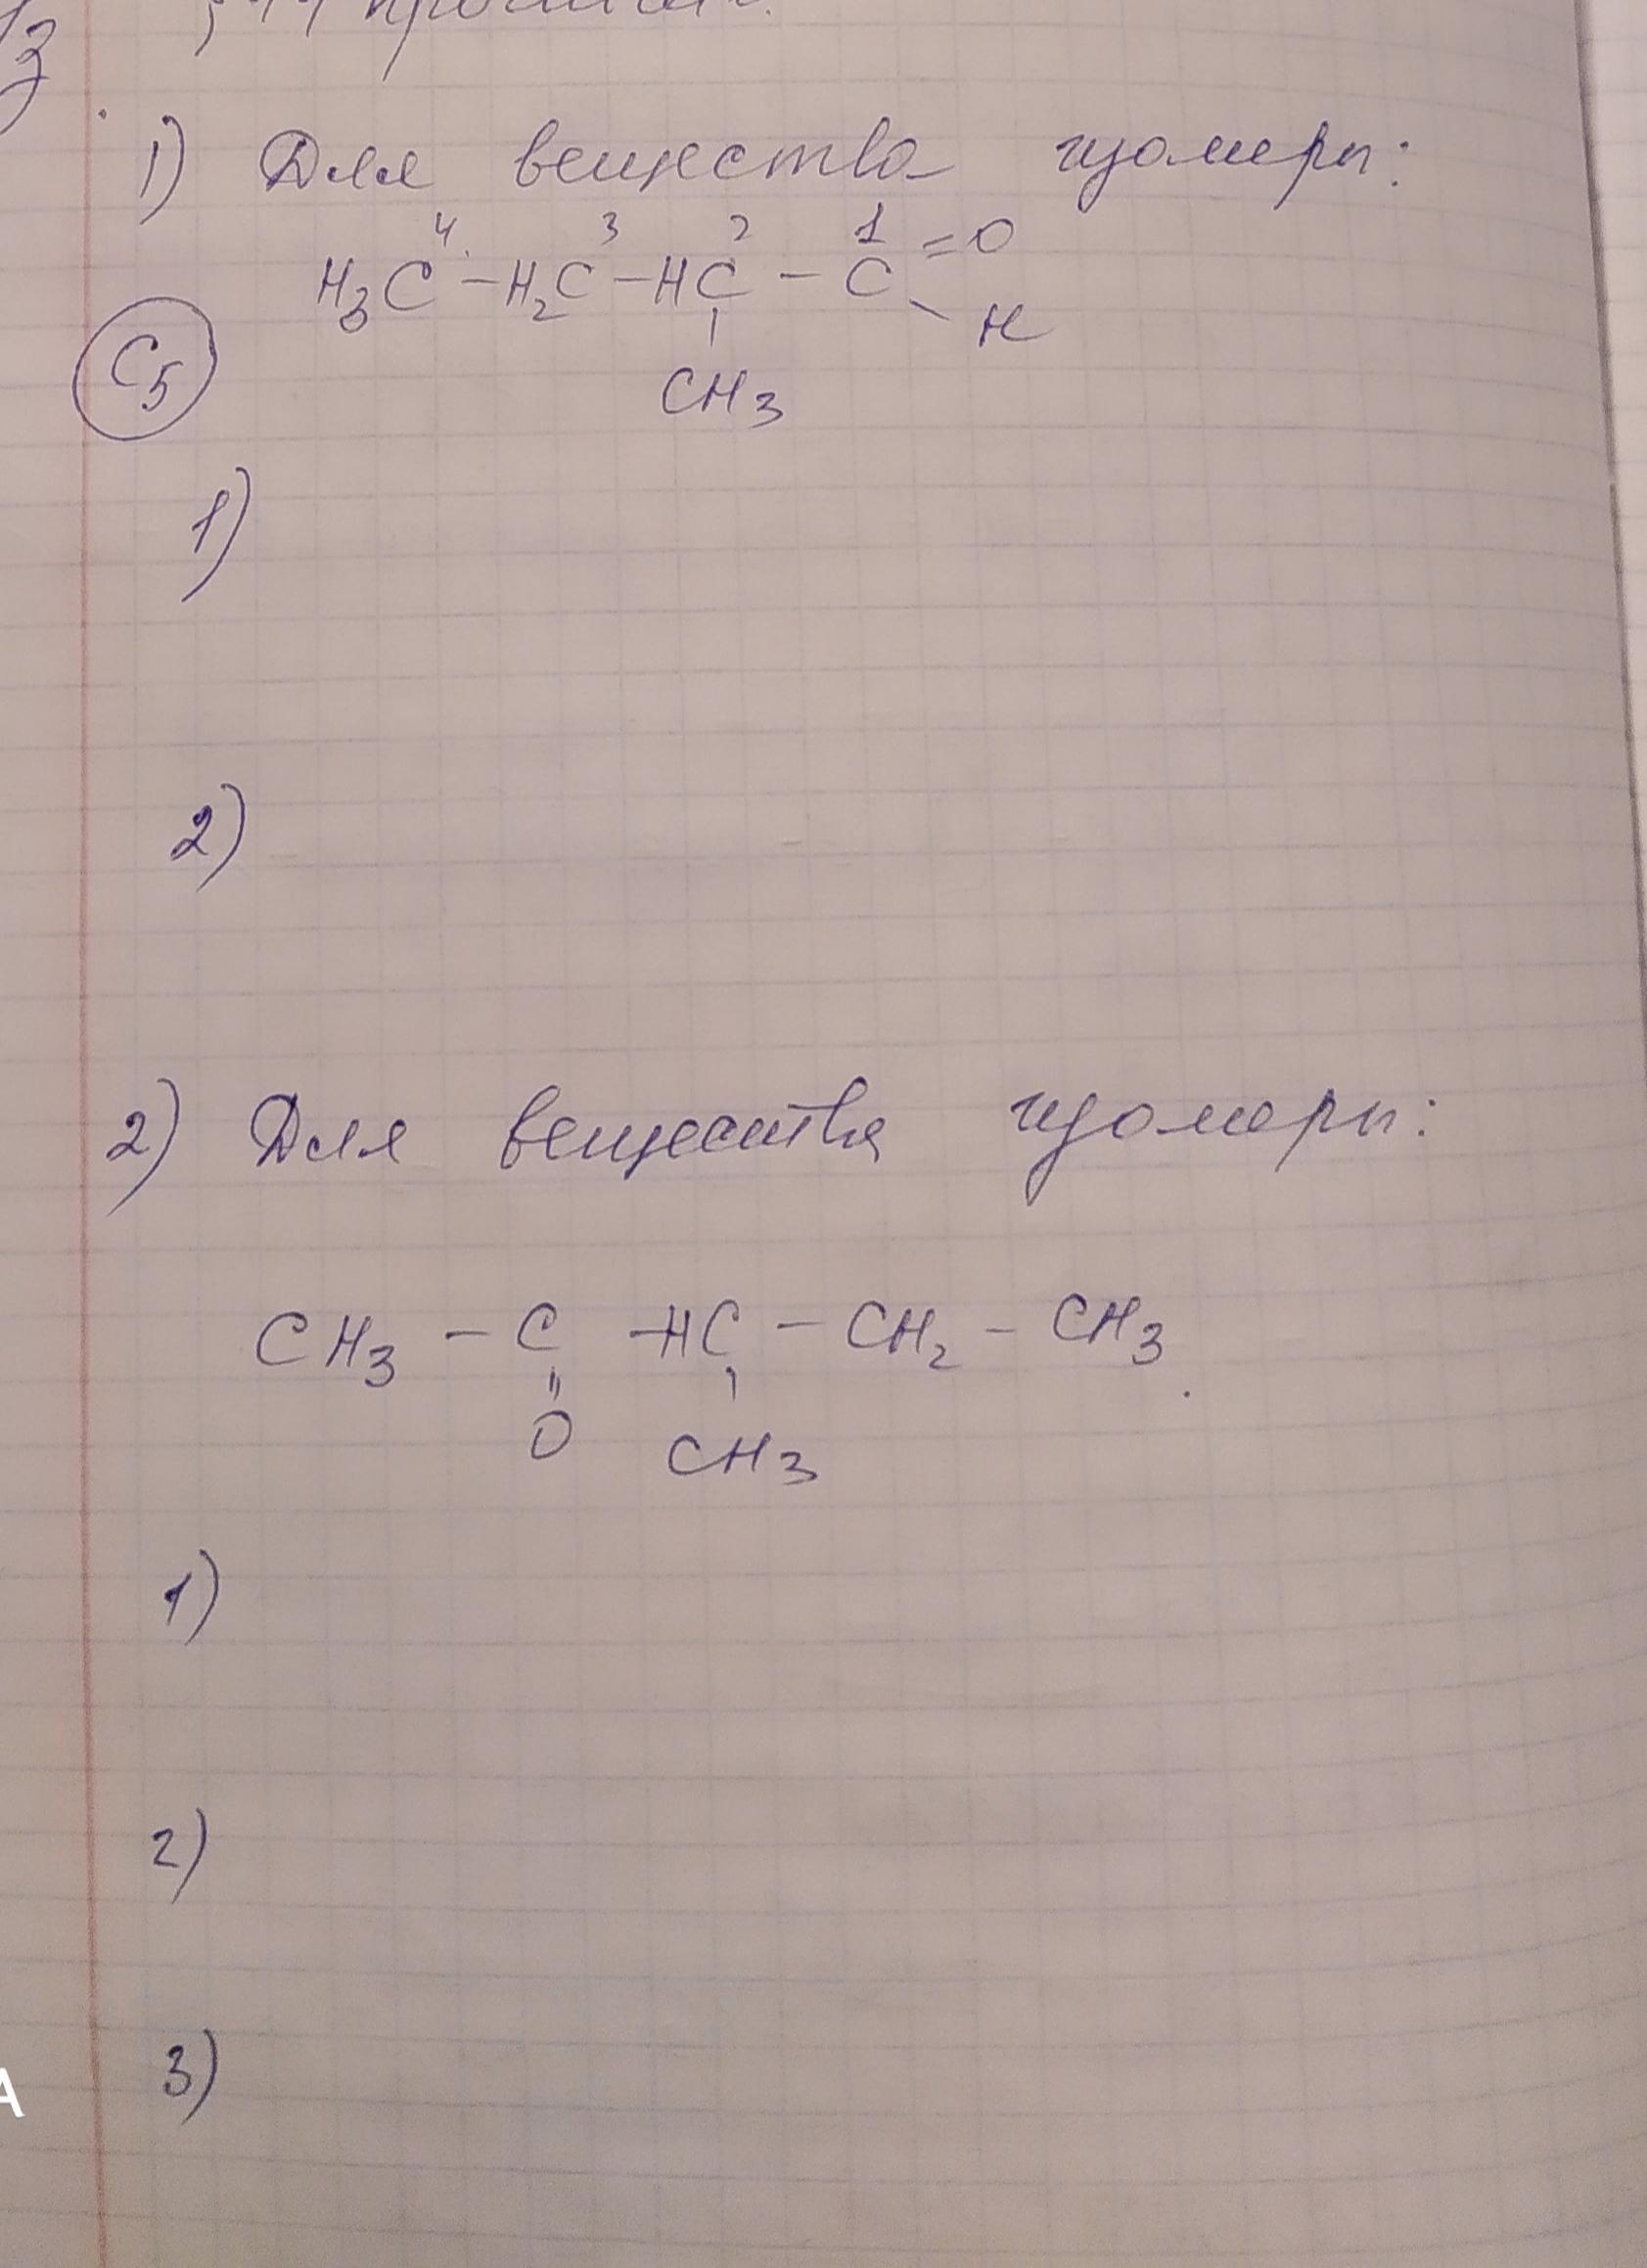 1) Для вещества изомеры:
4 3 2 1
H₃C – H₂C – HC – C =O
\ H
|
CH₃
C₅
1)
2)
2) Для вещества изомеры:
CH₃ – C – HC – CH₂ – CH₃.
" |
O CH₃
1)
2)
3)
A